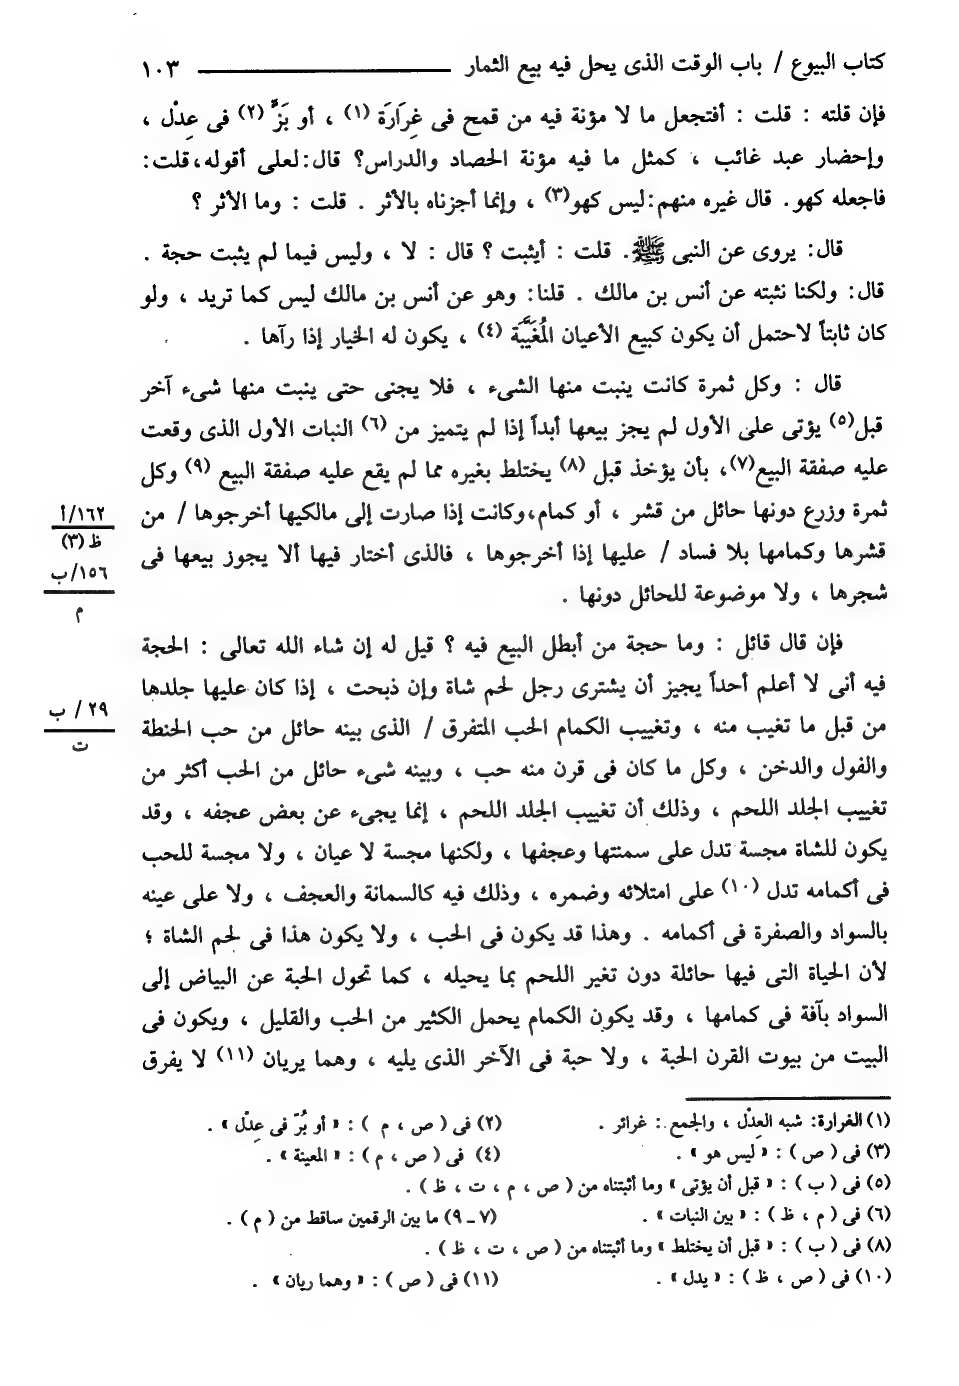 كتاب البيوع / باب الوقت الذى يحل فيه بيع الثمار ١٠٣
فإن قلته : قلت : أفتجعل ما لا مؤنة فيه من قمح فى غِرَارَة (١) ، أو بَزٍّ (٢) فى عِدْل ،
وإحضار عبد غائب ، كمثل ما فيه مؤنة الحصاد والدراس؟ قال: لعلى أقوله، قلت:
فاجعله كهو. قال غيره منهم: ليس كهو(٣) ، وإنما أجزناه بالأثر . قلت : وما الأثر ؟
قال: يروى عن النبى ﷺ. قلت : أيثبت ؟ قال : لا ، وليس فيما لم يثبت حجة .
قال: ولكنا نثبته عن أنس بن مالك . قلنا: وهو عن أنس بن مالك ليس كما تريد ، ولو
كان ثابتاً لاحتمل أن يكون كبيع الأعيان المُغَيَّبَة (٤) ، يكون له الخيار إذا رآها .
قال : وكل ثمرة كانت ينبت منها الشىء ، فلا يجنى حتى ينبت منها شىء آخر
قبل(٥) يؤتى على الأول لم يجز بيعها أبداً إذا لم يتميز من (٦) النبات الأول الذى وقعت
عليه صفقة البيع(٧)، بأن يؤخذ قبل (٨) يختلط بغيره مما لم يقع عليه صفقة البيع (٩) وكل
ثمرة وزرع دونها حائل من قشر ، أو كمام، وكانت إذا صارت إلى مالكيها أخرجوها / من
قشرها وكمامها بلا فساد / عليها إذا أخرجوها ، فالذى أختار فيها ألا يجوز بيعها فى
شجرها ، ولا موضوعة للحائل دونها .
١٦٢/أ
ظ (٣)
١٥٦/ب
م
فإن قال قائل : وما حجة من أبطل البيع فيه ؟ قيل له إن شاء الله تعالى : الحجة
فيه أنى لا أعلم أحداً يجيز أن يشترى رجل لحم شاة وإن ذبحت ، إذا كان عليها جلدها
من قبل ما تغيب منه ، وتغييب الكمام الحب المتفرق / الذى بينه حائل من حب الحنطة
والفول والدخن ، وكل ما كان فى قرن منه حب ، وبينه شىء حائل من الحب أكثر من
تغييب الجلد اللحم ، وذلك أن تغييب الجلد اللحم ، إنما يجىء عن بعض عجفه ، وقد
يكون للشاة مجسة تدل على سمنتها وعجفها ، ولكنها مجسة لا عيان ، ولا مجسة للحب
فى أكمامه تدل (١٠) على امتلائه وضمره ، وذلك فيه كالسمانة والعجف ، ولا على عينه
بالسواد والصفرة فى أكمامه . وهذا قد يكون فى الحب ، ولا يكون هذا فى لحم الشاة ؛
لأن الحياة التى فيها حائلة دون تغير اللحم بما يحيله ، كما تحول الحبة عن البياض إلى
السواد بآفة فى كمامها ، وقد يكون الكمام يحمل الكثير من الحب والقليل ، ويكون فى
البيت من بيوت القرن الحبة ، ولا حبة فى الآخر الذى يليه ، وهما يريان (١١) لا يفرق
٢٩ / ب
ت
(١) الغرارة: شبه العِدْل ، والجمع : غرائر .
(٢) فى ( ص ، م ) : « أو بُرّ فى عِدْل » .
(٣) فى ( ص ) : « ليس هو » .
(٤) فى ( ص ، م ) : « المعينة » .
(٥) فى ( ب ) : « قبل أن يؤتى » وما أثبتناه من ( ص ، م ، ت ، ظ ) .
(٦) فى ( م ، ظ ) : « بين النبات » .
(٧ ــ ٩) ما بين الرقمين ساقط من ( م ) .
(٨) فى ( ب ) : « قبل أن يختلط » وما أثبتناه من ( ص ، ت ، ظ ) .
(١٠) فى ( ص ، ظ ) : « يدل » .
(١١) فى ( ص ) : « وهما ريان » .